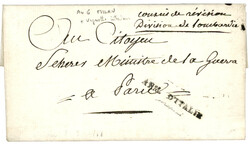 An 6
conseil de révision
Division de Lombardie
Au Citoyen
Scherer Ministre de la Guerre
a Paris
ARM. D'ITALIE